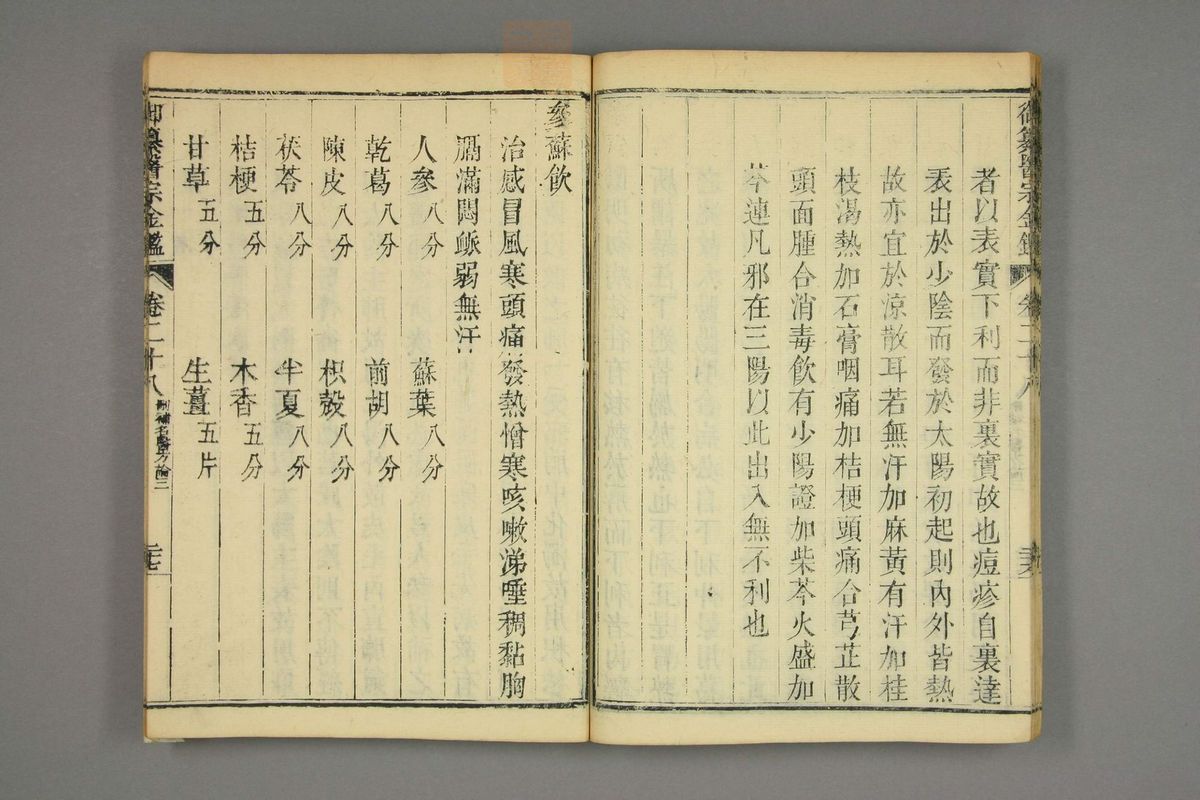 御纂醫宗金鑑 卷二十八
者以表實下利而非裏實故也痘疹自裏達
表出於少陰而發於太陽初起則內外皆熱
故亦宜於涼散耳若無汗加麻黃有汗加桂
枝渴熱加石膏咽痛加桔梗頭痛合芎芷散
頭面腫合消毒飲有少陽證加柴芩火盛加
芩連凡邪在三陽以此出入無不利也
參蘇飲
治感冒風寒頭痛發熱憎寒咳嗽涕唾稠黏胸
膈滿悶脈弱無汗
人參八分 蘇葉八分
乾葛八分 前胡八分
陳皮八分 枳殼八分
茯苓八分 半夏八分
桔梗五分 木香五分
甘草五分 生薑五片
御纂醫宗金鑑 卷二十八 刪補名醫方論三 二十七